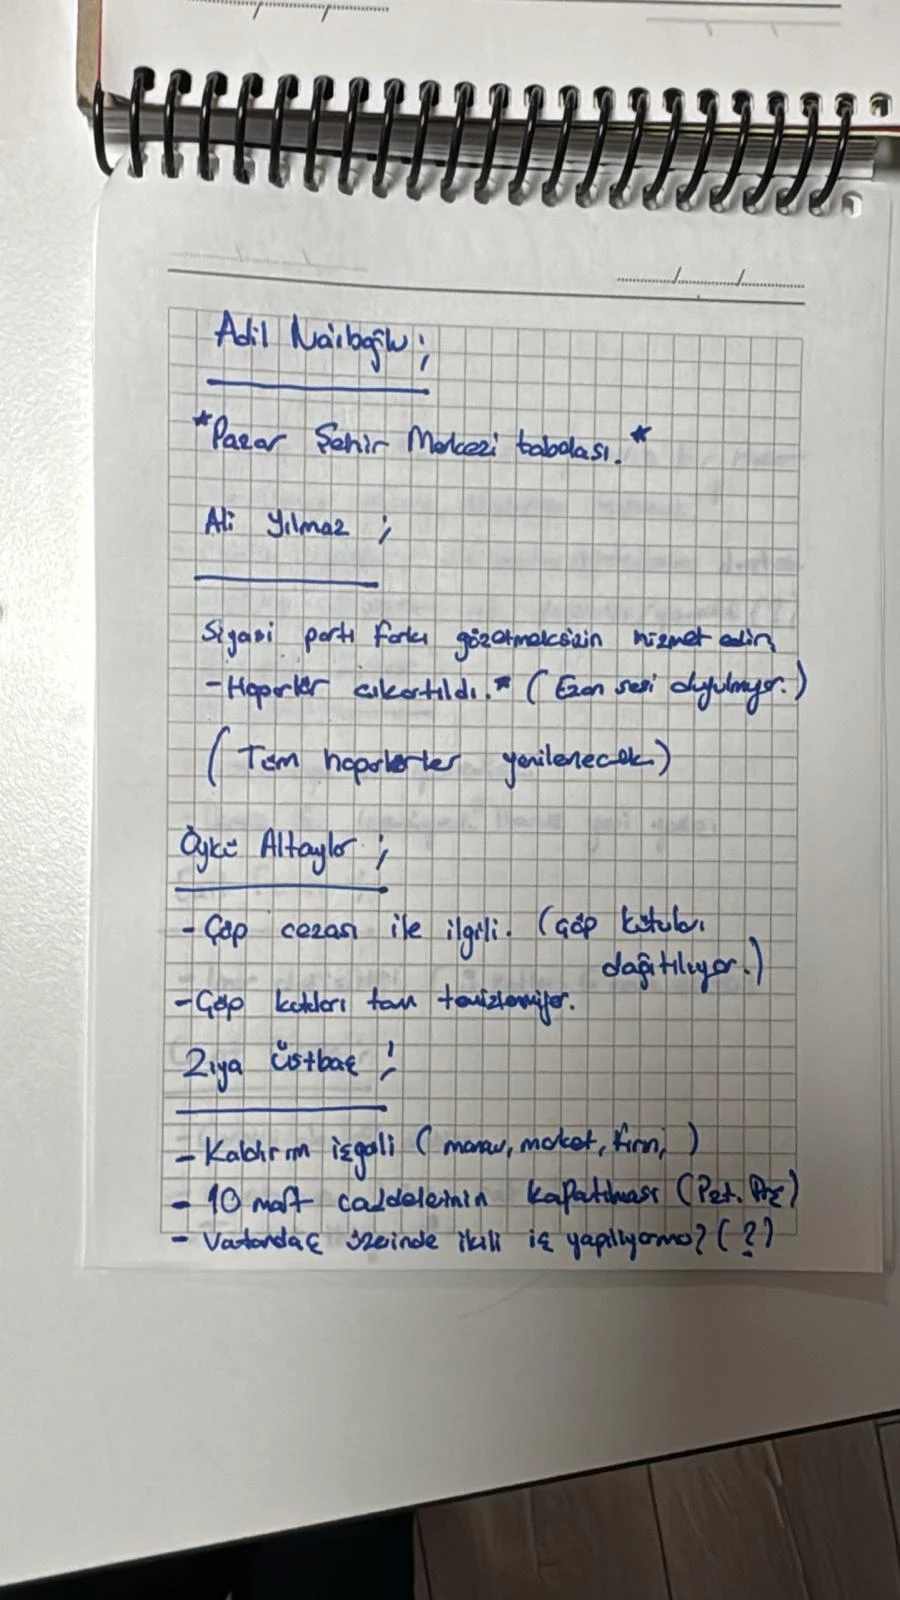 Adil Naiboğlu;
*Pazar Şehir Merkezi tabelası.*
Ali Yılmaz ;
Siyasi parti farkı gözetmeksizin hizmet edin,
- Hoparlör çıkartıldı.* (Ezan sesi duyulmuyor.)
(Tüm hoparlörler yenilenecek.)
Öykü Altaylar ;
- Çöp cezası ile ilgili. (Çöp kutuları
dağıtılıyor.)
- Çöp kutuları tam temizlemiyor.
Ziya Üstbaş ;
- Kaldırım işgali (manav, market, fırın, )
- 10 mart caddelerinin kapatılması (Pzt. Prş)
- Vatandaş üzerinde ikili iş yapılıyormu? (?)